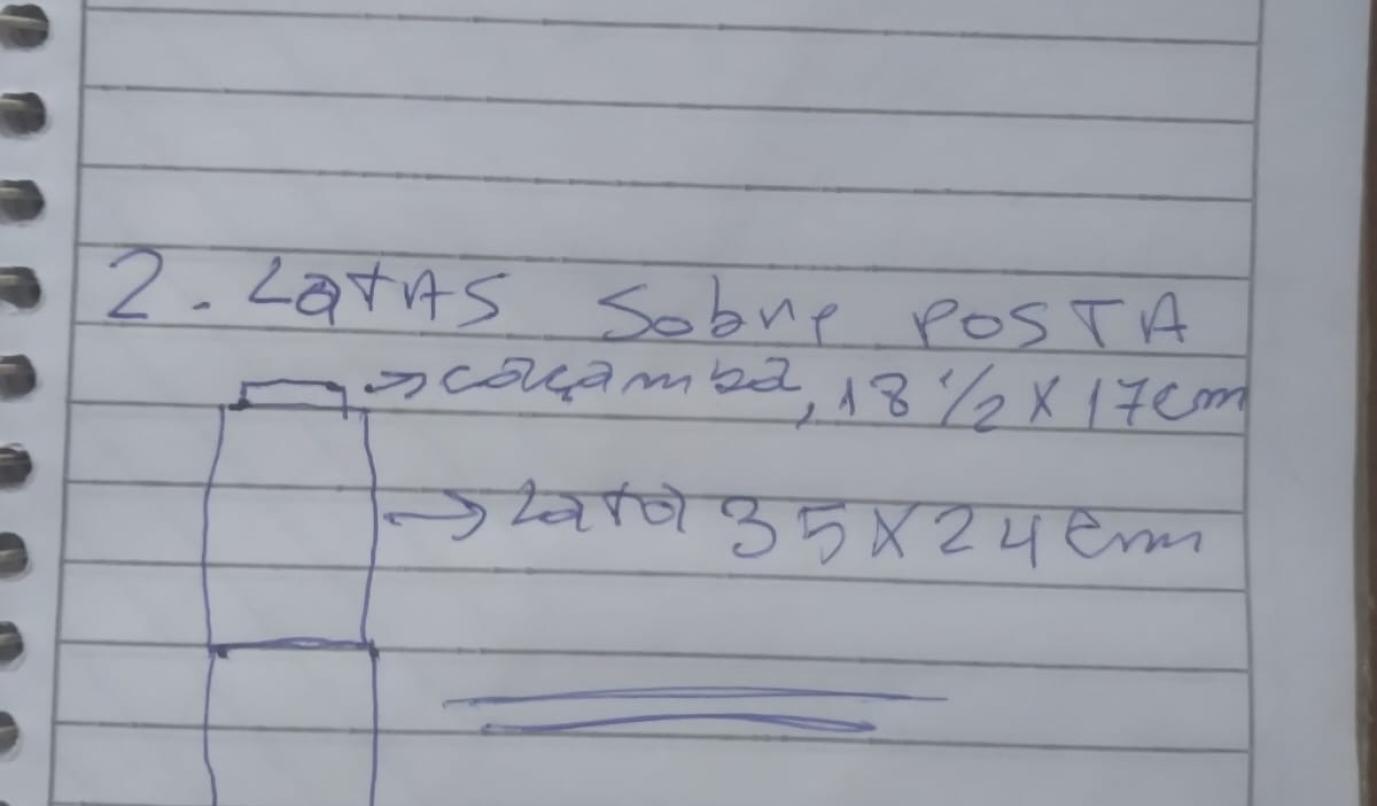 2. LatAS Sobre POSTA
→ caçamba, 18 1/2 X 17cm
→ Lata 35X24cm